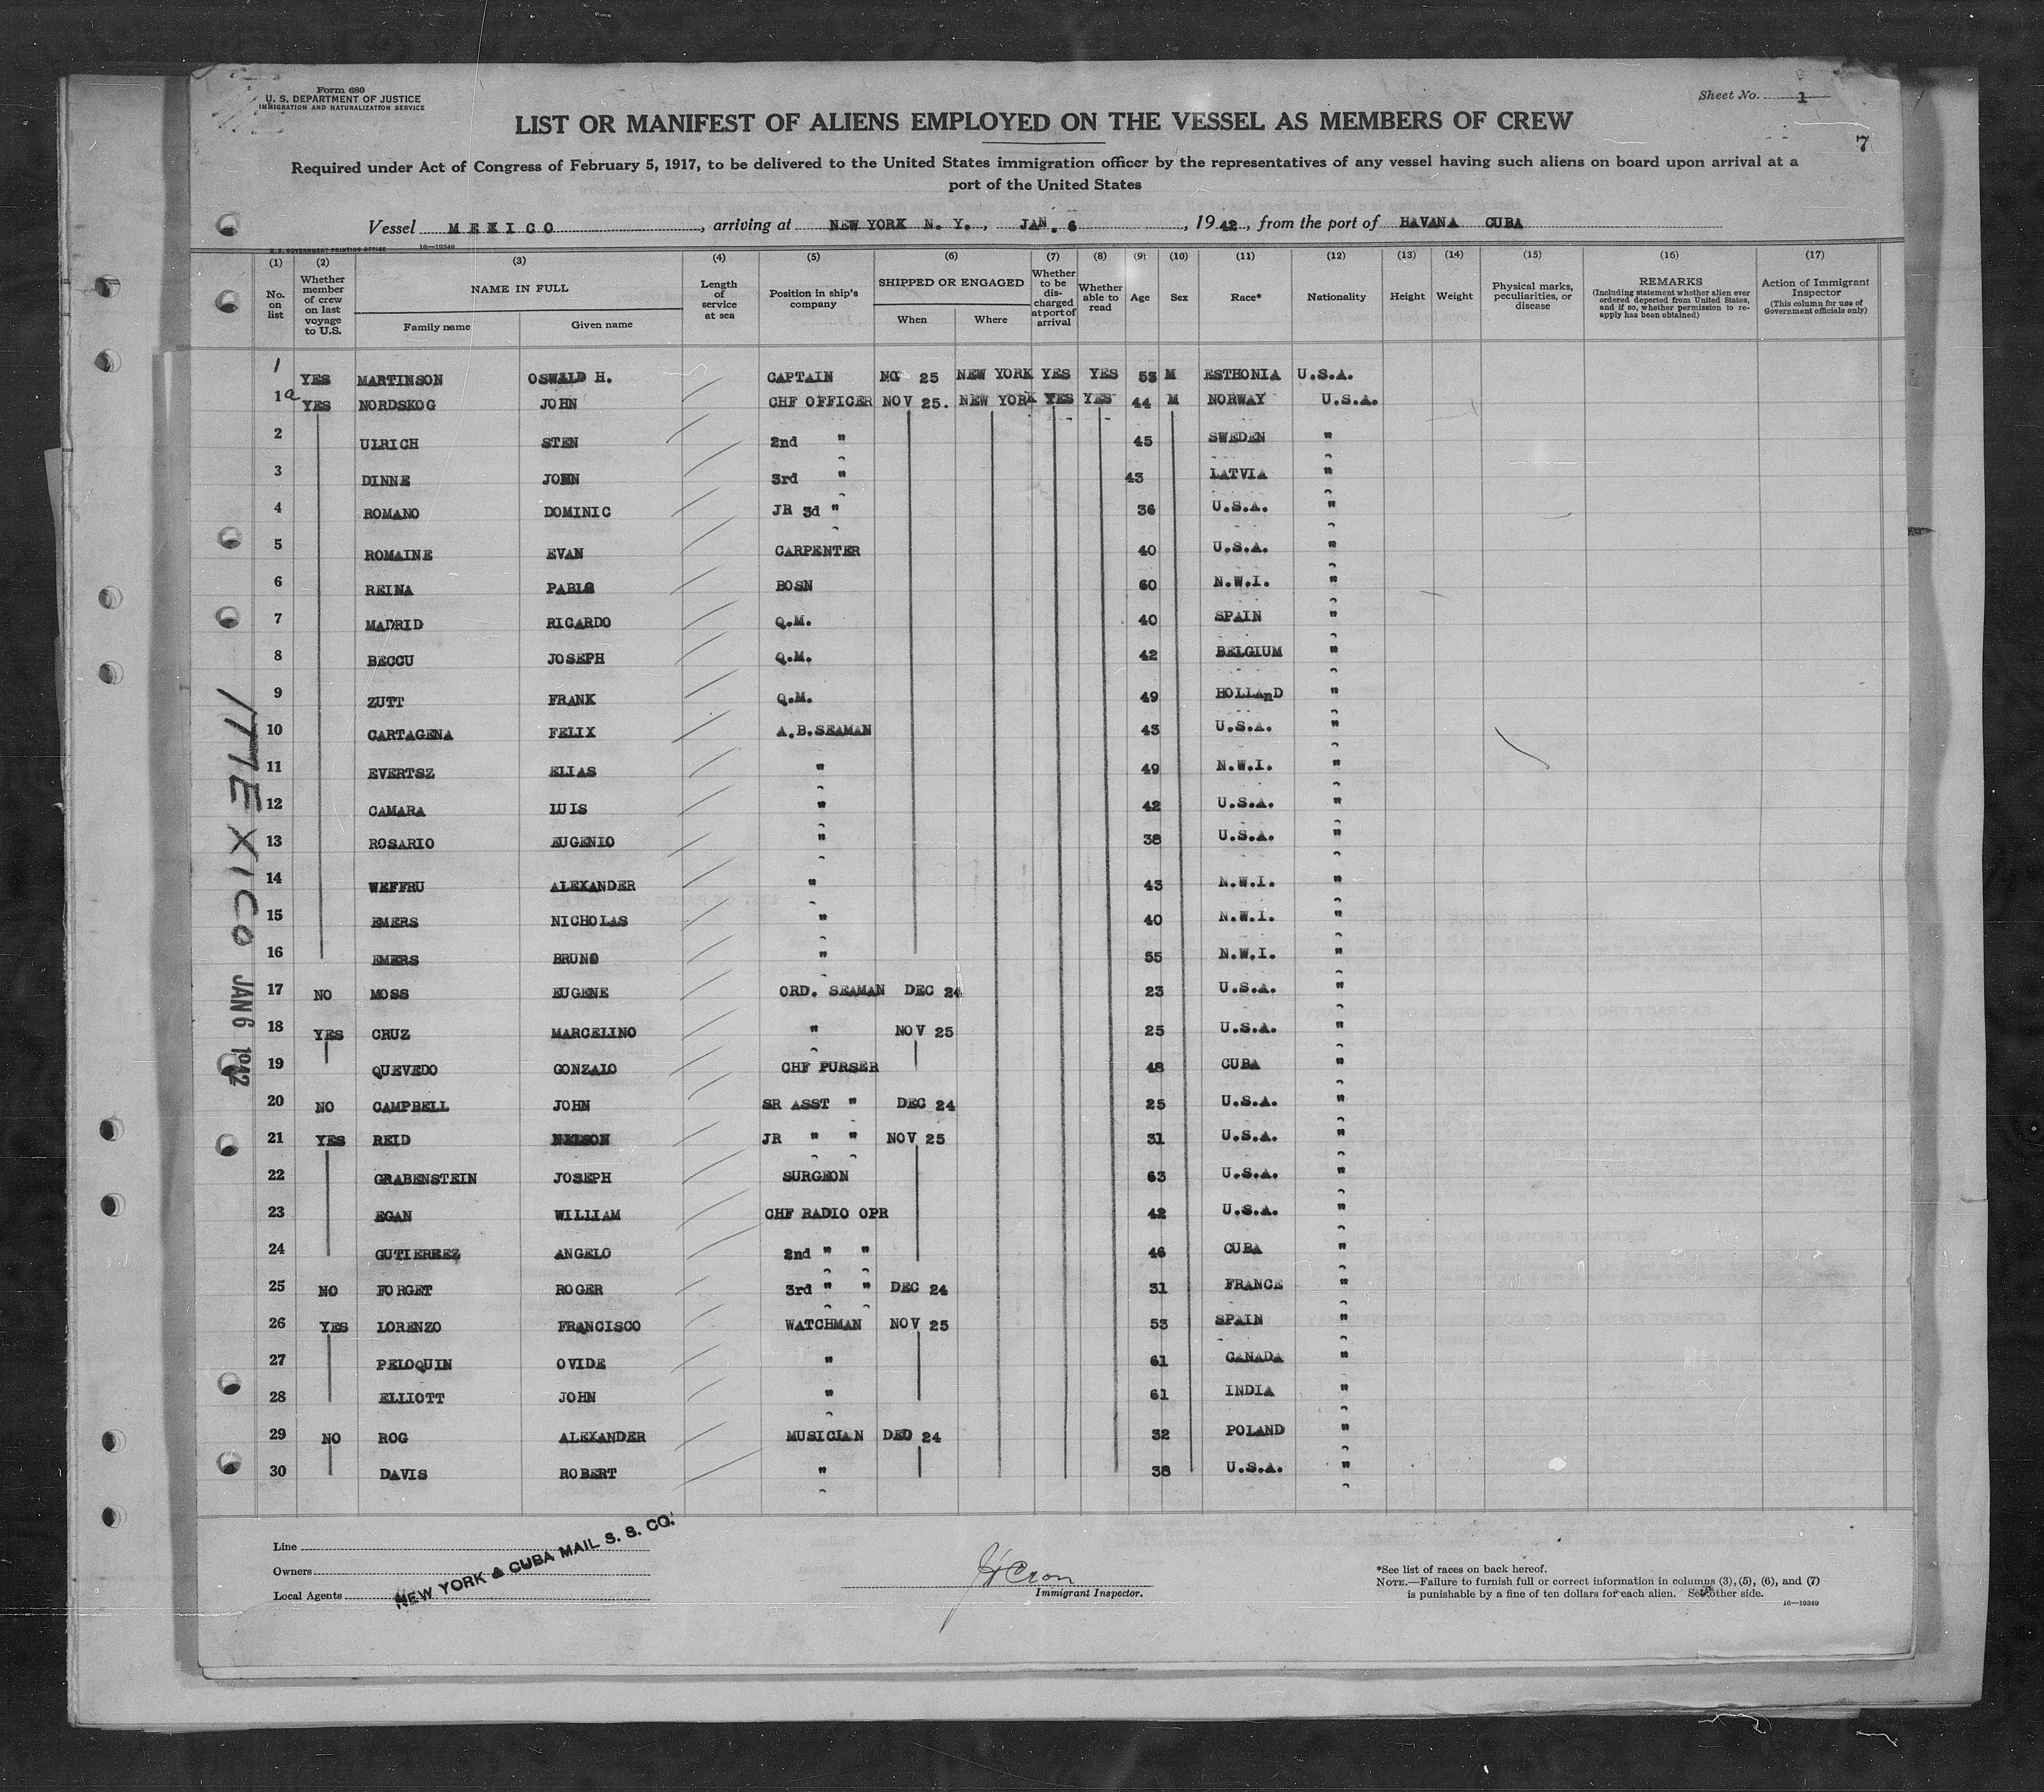 Form 680
U. S. DEPARTMENT OF JUSTICE
IMMIGRATION AND NATURALIZATION SERVICE
Sheet No. 1
7
LIST OR MANIFEST OF ALIENS EMPLOYED ON THE VESSEL AS MEMBERS OF CREW
Required under Act of Congress of February 5, 1917, to be delivered to the United States immigration officer by the representatives of any vessel having such aliens on board upon arrival at a
port of the United States
Vessel MEXICO, arriving at NEW YORK N. Y., JAN. 6, 1942, from the port of HAVANA CUBA
U. S. GOVERNMENT PRINTING OFFICE 16—19349
(1) (2) (3) (4) (5) (6) (7) (8) (9) (10) (11) (12) (13) (14) (15) (16) (17)
No. on list
Whether member of crew on last voyage to U.S.
NAME IN FULL
Family name
Given name
Length of service at sea
Position in ship's company
SHIPPED OR ENGAGED
When
Where
Whether to be discharged at port of arrival
Whether able to read
Age
Sex
Race*
Nationality
Height
Weight
Physical marks, peculiarities, or disease
REMARKS
(Including statement whether alien ever ordered deported from United States, and if so, whether permission to reapply has been obtained)
Action of Immigrant Inspector
(This column for use of Government officials only)
1 YES MARTINSON OSWALD H. CAPTAIN 25 NEW YORK YES YES 53 M ESTHONIA U.S.A.
1a YES NORDSKOG JOHN CHF OFFICER NOV 25. NEW YORK YES YES 44 M NORWAY U.S.A.
2 ULRICH STEN 2nd " 45 SWEDEN "
3 DINNE JOHN 3rd " 43 LATVIA "
4 ROMANO DOMINIC JR 3d " 36 U.S.A. "
5 ROMAINE EVAN CARPENTER 40 U.S.A. "
6 REINA PABLO BOSN 60 N.W.I. "
7 MADRID RICARDO Q.M. 40 SPAIN "
8 BECCU JOSEPH Q.M. 42 BELGIUM "
9 ZUTT FRANK Q.M. 49 HOLLAnD "
10 CARTAGENA FELIX A.B.SEAMAN 43 U.S.A. "
11 EVERTSZ ELIAS " 49 N.W.I. "
12 CAMARA LUIS " 42 U.S.A. "
13 ROSARIO EUGENIO " 38 U.S.A. "
14 WEFFRU ALEXANDER " 43 N.W.I. "
15 EMERS NICHOLAS " 40 N.W.I. "
16 EMERS BRUNO " 55 N.W.I. "
17 NO MOSS EUGENE ORD. SEAMAN DEC 24 23 U.S.A. "
18 YES CRUZ MARCELINO " NOV 25 25 U.S.A. "
19 QUEVEDO GONZALO CHF PURSER 48 CUBA "
20 NO CAMPBELL JOHN SR ASST " DEC 24 25 U.S.A. "
21 YES REID NELSON JR " " NOV 25 31 U.S.A. "
22 GRABENSTEIN JOSEPH SURGEON 63 U.S.A. "
23 EGAN WILLIAM CHF RADIO OPR 42 U.S.A. "
24 GUTIERREZ ANGELO 2nd " " 46 CUBA "
25 NO FORGET ROGER 3rd " " DEC 24 31 FRANCE "
26 YES LORENZO FRANCISCO WATCHMAN NOV 25 53 SPAIN "
27 PELOQUIN OVIDE " 61 CANADA "
28 ELLIOTT JOHN " 61 INDIA "
29 NO ROG ALEXANDER MUSICIAN DEC 24 32 POLAND "
30 DAVIS ROBERT " 38 U.S.A. "
MEXICO
JAN 6 1942
Line
Owners
Local Agents
NEW YORK & CUBA MAIL S. S. CO.
Immigrant Inspector.
*See list of races on back hereof.
NOTE.—Failure to furnish full or correct information in columns (3), (5), (6), and (7)
is punishable by a fine of ten dollars for each alien. See other side.
16—19349